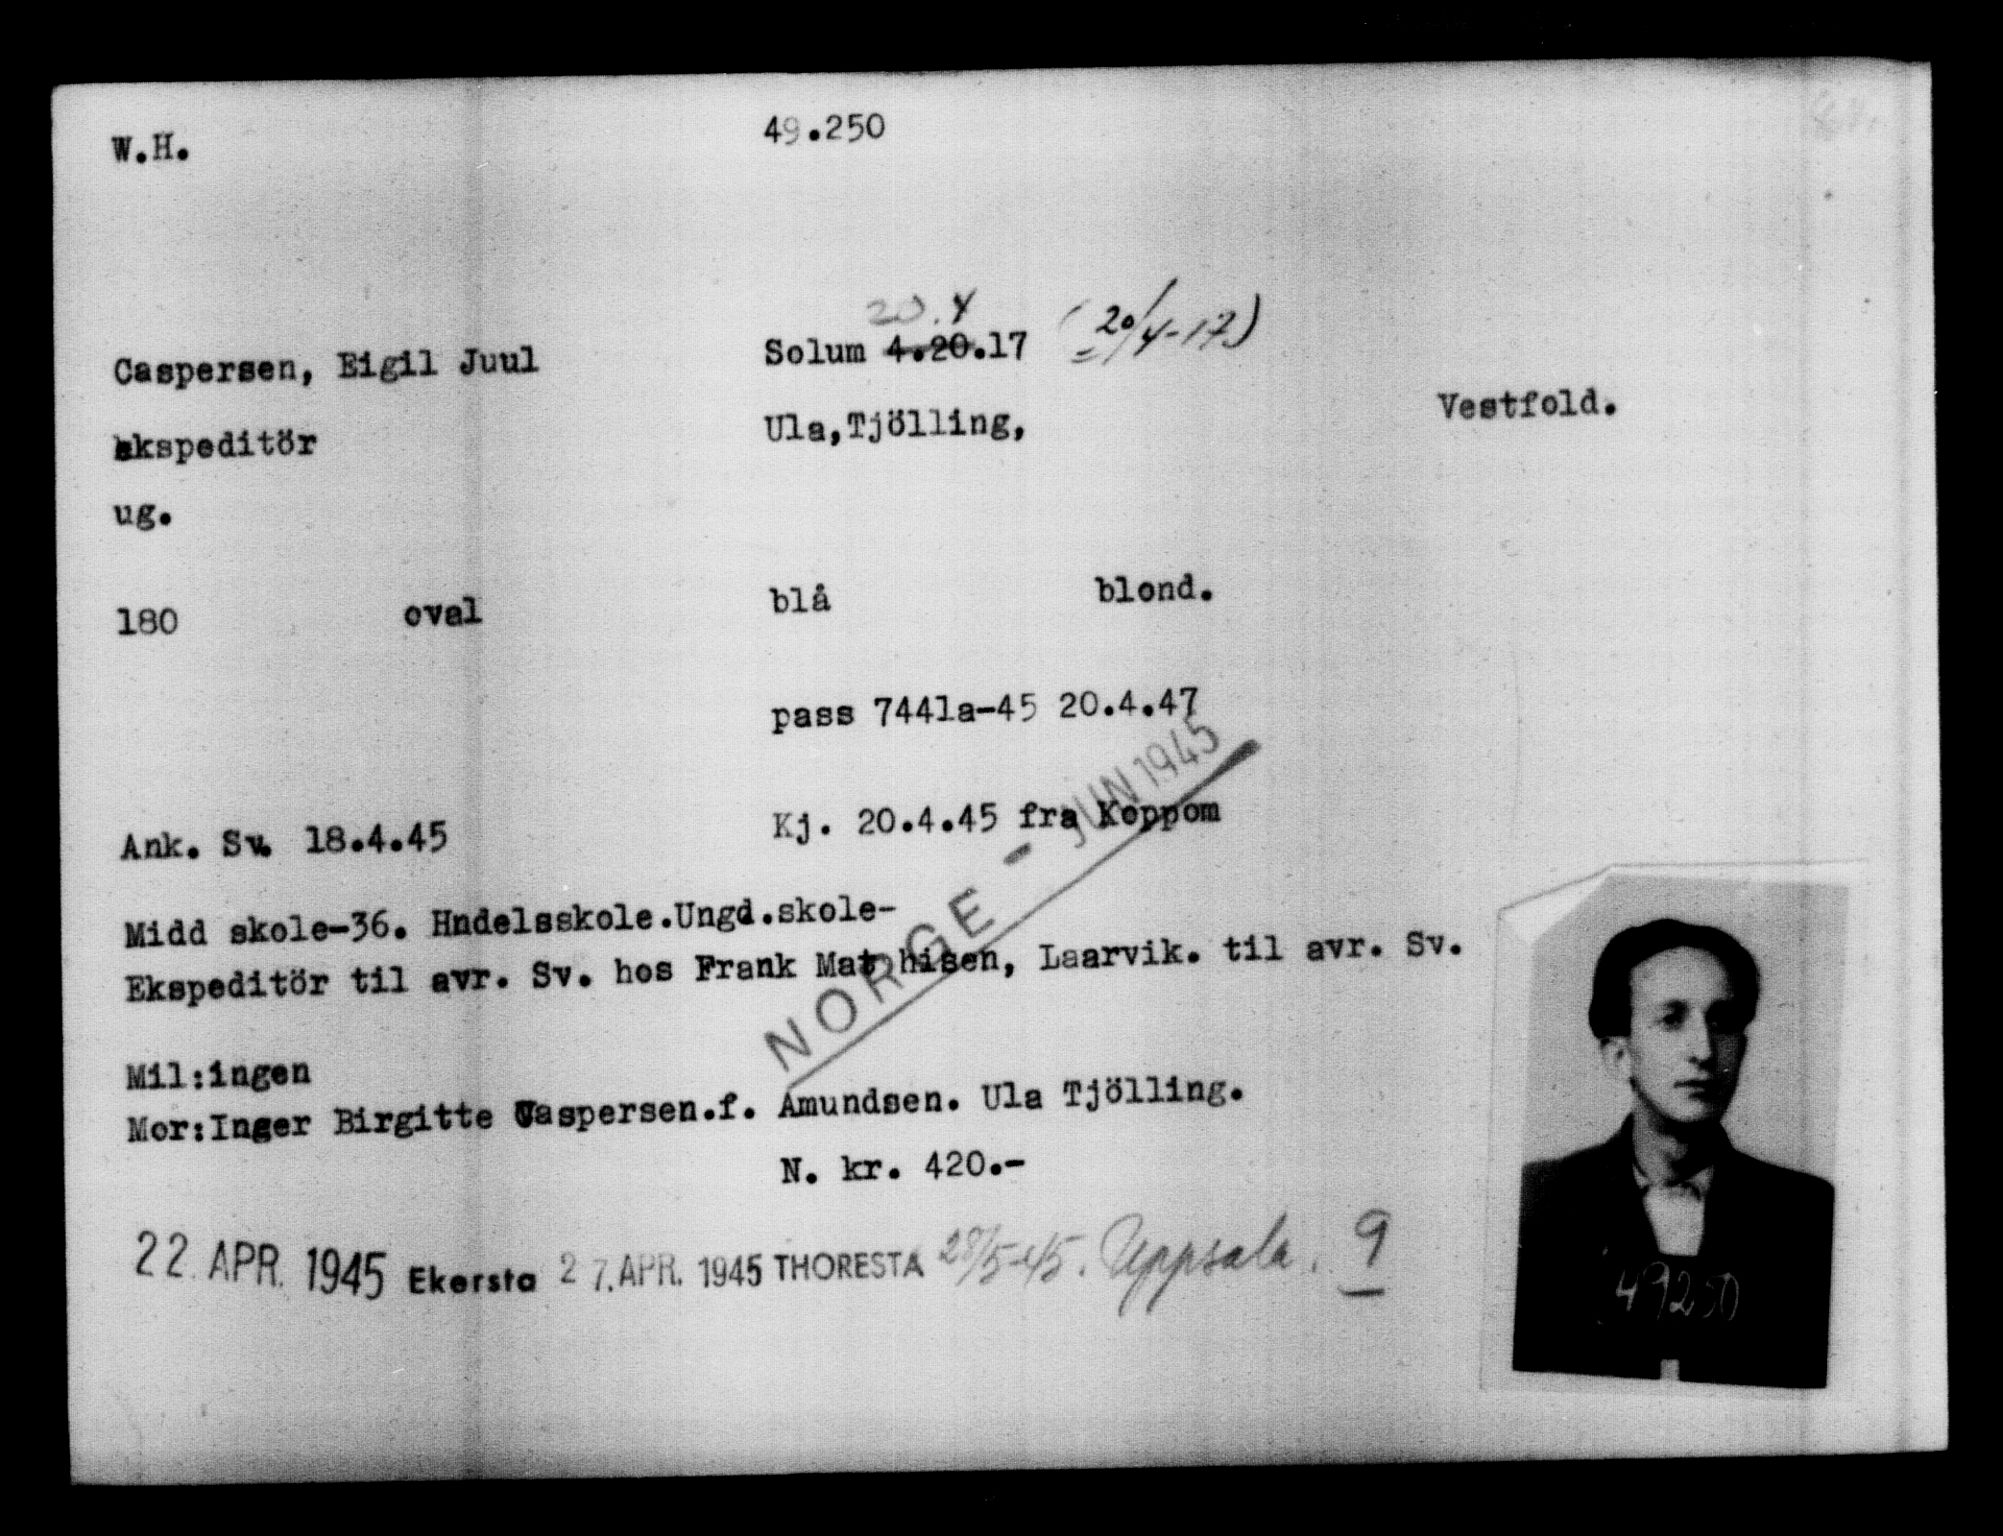 W.H. 49.250
20.4
Caspersen, Eigil Juul Solum 4.20.17 (20/4-17)
ekspeditör Ula,Tjölling, Vestfold.
ug.
180 oval blå blond.
pass 7441a-45 20.4.47
Ank. Sv. 18.4.45 Kj. 20.4.45 fra Koppom
NORGE - JUN 1945
Midd skole-36. Hndelsskole.Ungd.skole-
Ekspeditör til avr. Sv. hos Frank Mat hisen, Laarvik. til avr. Sv.
Mil:ingen
Mor:Inger Birgitte Caspersen.f. Amundsen. Ula Tjölling.
N. kr. 420.-
22. APR. 1945 Ekersta 27. APR. 1945 THORESTA 28/5-45. Uppsala. 9
49250